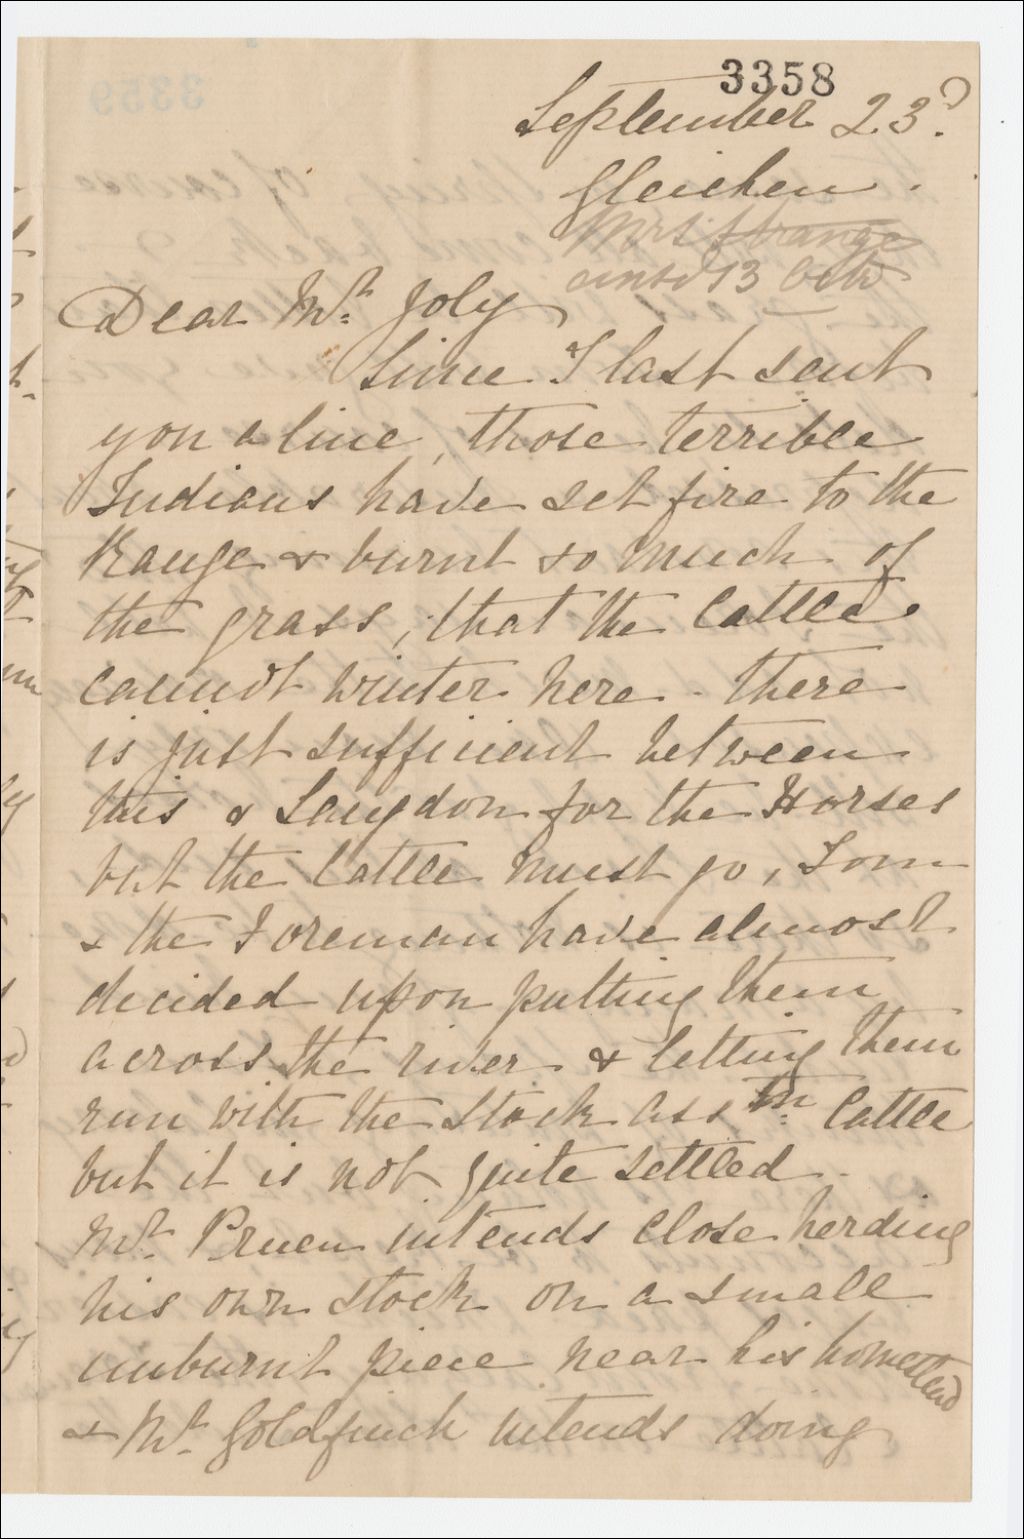 3358
September 23?
Gleichen.
Mrs Strange
ansd 13 Octr
Dear Mr. Joly
Since I last sent
you a line, those terrible
Indians have set fire to the
Range & burnt so much of
the grass, that the Cattle
cannot winter here - there
is just sufficient between
this & Langdon for the Horses
but the Cattle must go, Tom
& the Foreman have almost
decided upon putting them
across the river & letting them
run with the Stock Assn. Cattle
but it is not quite settled.
Mr. Pruen intends close herding
his own stock on a small
unburnt piece near his homestead
& Mr. Goldfinch intends doing
3359